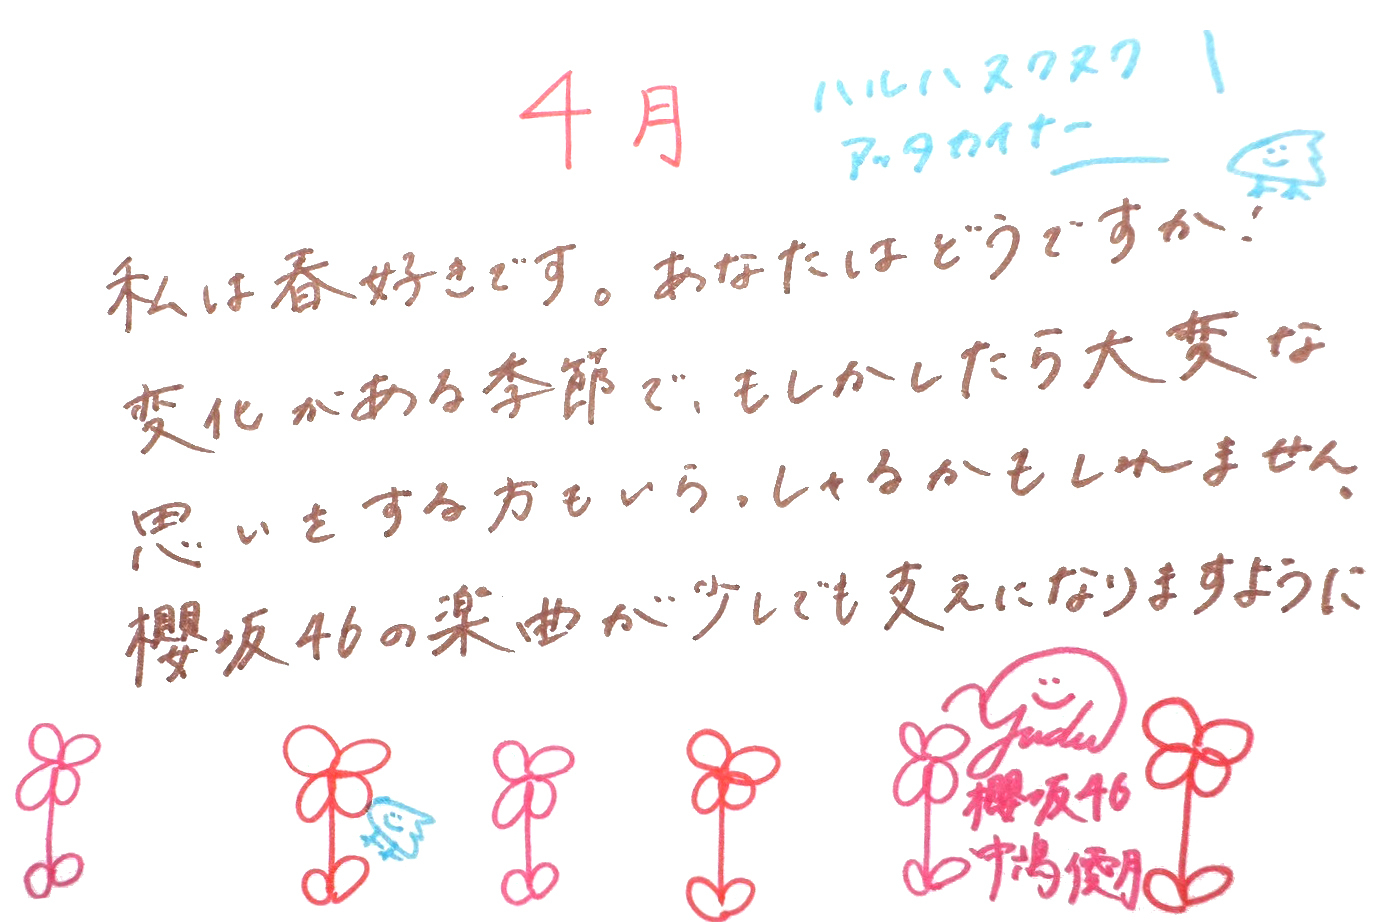 4月
ハルハヌクヌク
アッタカイナー
私は春好きです。あなたはどうですか!
変化がある季節で、もしかしたら大変な
思いをする方もいらっしゃるかもしれません。
櫻坂46の楽曲が少しでも支えになりますように
yudu
櫻坂46
中嶋優月